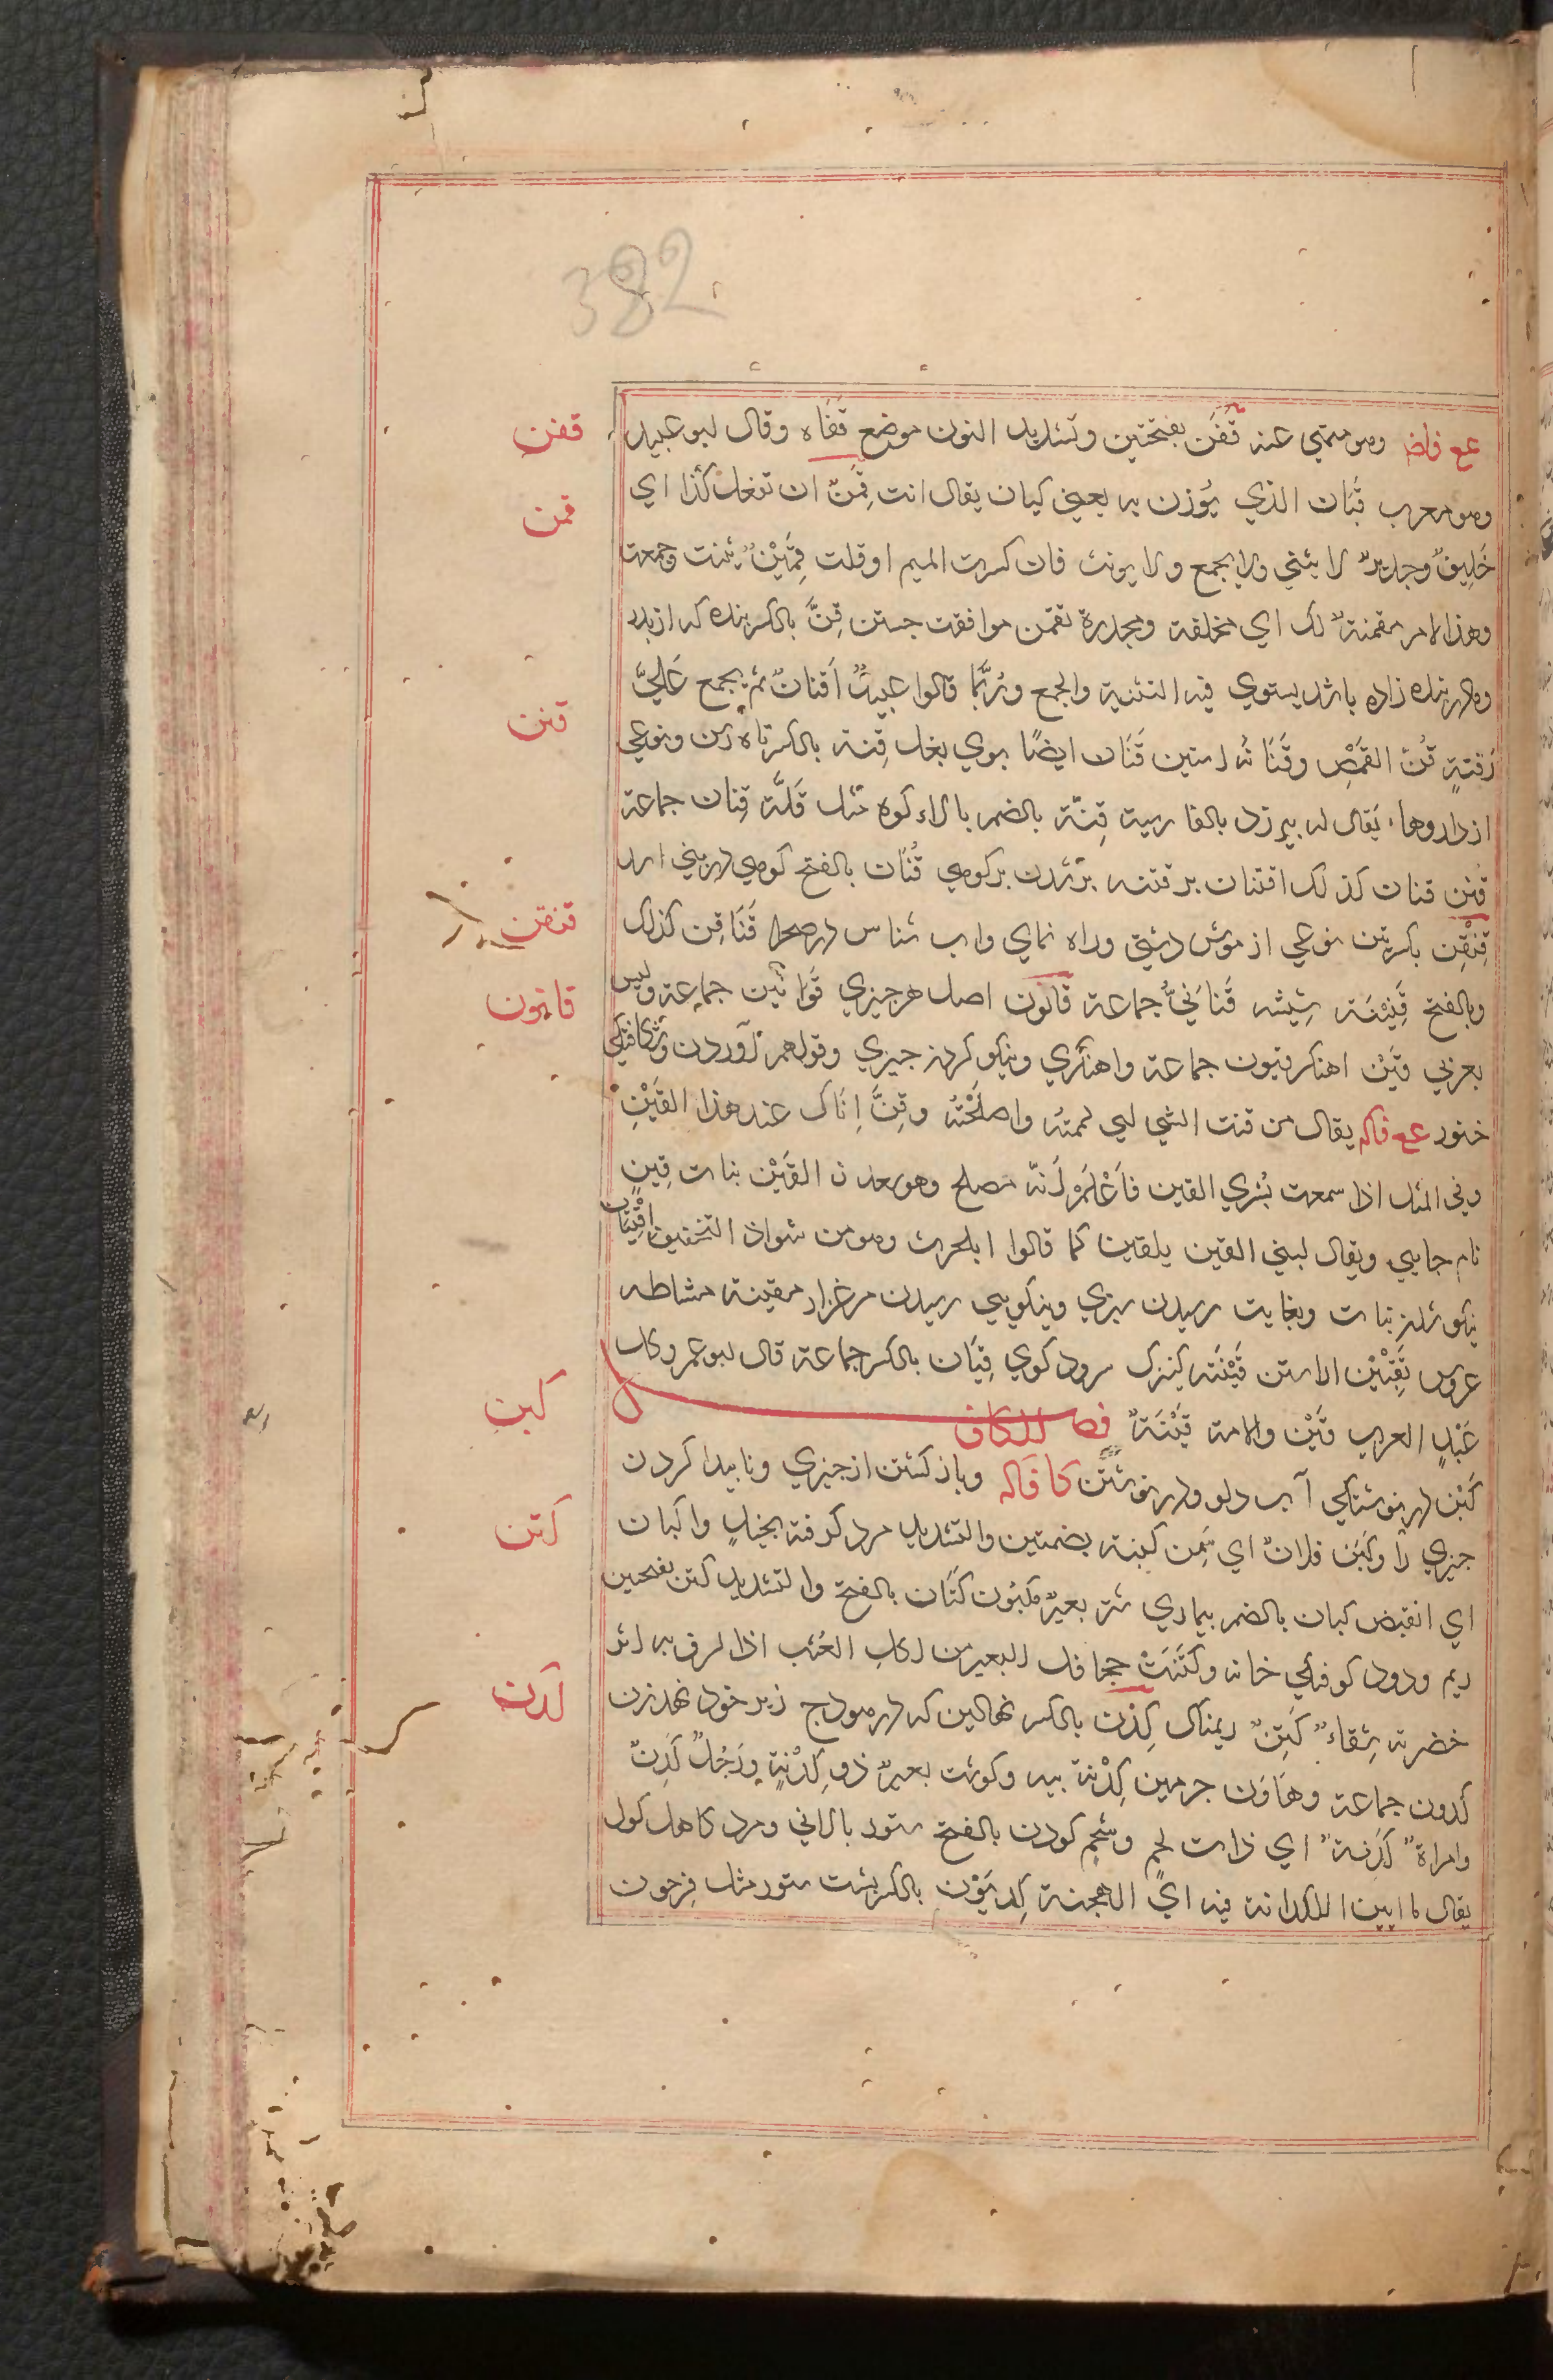 382
عع فاض وهو منهي عنه قَفَن بفتحتين وتشديد النون موضع قَفَاه وقال ابو عبيد
قفن
وهو معرب قَبَان الذي يُوزن به يعني كپان يقال انت قِمَنٌ ان تفعل كذا اي
قمن
خَلِيقٌ وجديرٌ لا يثني ولا يجمع ولا يونث فان كسرت الميم او قلت قِمَّيْنٌ ثنيت وجمعت
وهذا الامر مقمنةٌ لك اي مخلقة ومجدرة تقمن موافقت جستن قِنَّ بالكسر بنده كه از پدر
ومادر بنده زاده باشد يستوي فيه التثنية والجمع ورُبَّما قالوا عبيدٌ اَقنانٌ ثم يجمع عَلي
قنن
زَقنةٍ قُنُّ القمص وقُنَانُه استين قَنَان ايضًا بوي بغل قِنة بالكسر تاه رسن ونوعي
از داروها يقال له بيرزد بالفارسية قِنّة بالضم بالاء كوه مثل قَلَّة قِنان جماعة
قنن قنات كذلك اقتنان بر قننه بر شدن بر كوهي قُنَان بالفتح كوهي در بني اسد
قِنْقِن بكسرتين نوعي از موش دشتي وراه نماي واب شناس در صحرا قَنَاقِن كذلك
قنقن
وبالفتح قِنّينَة شيشه قَنَانيُّ جماعة قانون اصل هر چيزي قَوَانين جماعة وليس
قانون
بعربي قَيْن اهنكر قيون جماعة واهنگري ونيكو كردن چيزي وقولهم آوردن وشكافتگي
خنور عع فاله يقال من قنت الشي لي لممته واصلحته وقِنَّ اِنَاك عند هذا القَيْنِ
وفي المثل اذا سمعت بُسُري القين فَاعْلَم اَنّه مصلح وهو سعد ن القَيْن بنات قينٍ
نام جايي ويقال لبني القين بلقين كما قالوا ابلحرث وهو من شواذ التخفيف اقْتِيَان
نيكو شدن نبات وبغايت رسيدن سبزي ونيكويي رسيدن مرغزار مقينة مشاطه
عروس تَقَيْيْن اراستن قَيْنَة كنيزك سرود كوي قِيَان بالكسر جماعة قال ابو عمرو كل
عَبْدٍ العرب قَيْن والامة قَيْنَةٌ فصل الكاف
كبن
كَبْن در نوشتگي آب دلو ودر نوشتن كا فاله وباز كشتن از چيزي وناپيدا كردن
چيزي را وكَبَن فلانٌ اي سَمِن كبنة بضمتين والتشديد مرد كرفته بخيلٍ واكبان
كتن
اي انقبض كبان بالضم بيماري شتر بعيرٌ مكبُون كَتَان بالفتح والتشديد كتن بفتحين
ريم ودود كوفتگي خانه وكَتَنَتْ جحافل البعير من اكل العُشب اذا لزق به اثر
خضرته سِقاءٌ كَتِنٌ ريمناك كِدْن بالكسر نهالين كه در هودج زير خود نهد زن
كدن
كدون جماعة وهَاوَن چرمين كِدْنة پيه وكوشت بعيرٌ ذو كِدْنةٍ ورَجُلٌ كَدِنٌ
وامراة كَدِنةٌ اي ذات لحمٍ وشحمٍ كودن بالفتح ستور پالاني ومرد كاهل كول
يقال ما ابين الكدانة فيه اي الهجنة كِديَوْن بالكسر پشت ستور مثل فِرجون